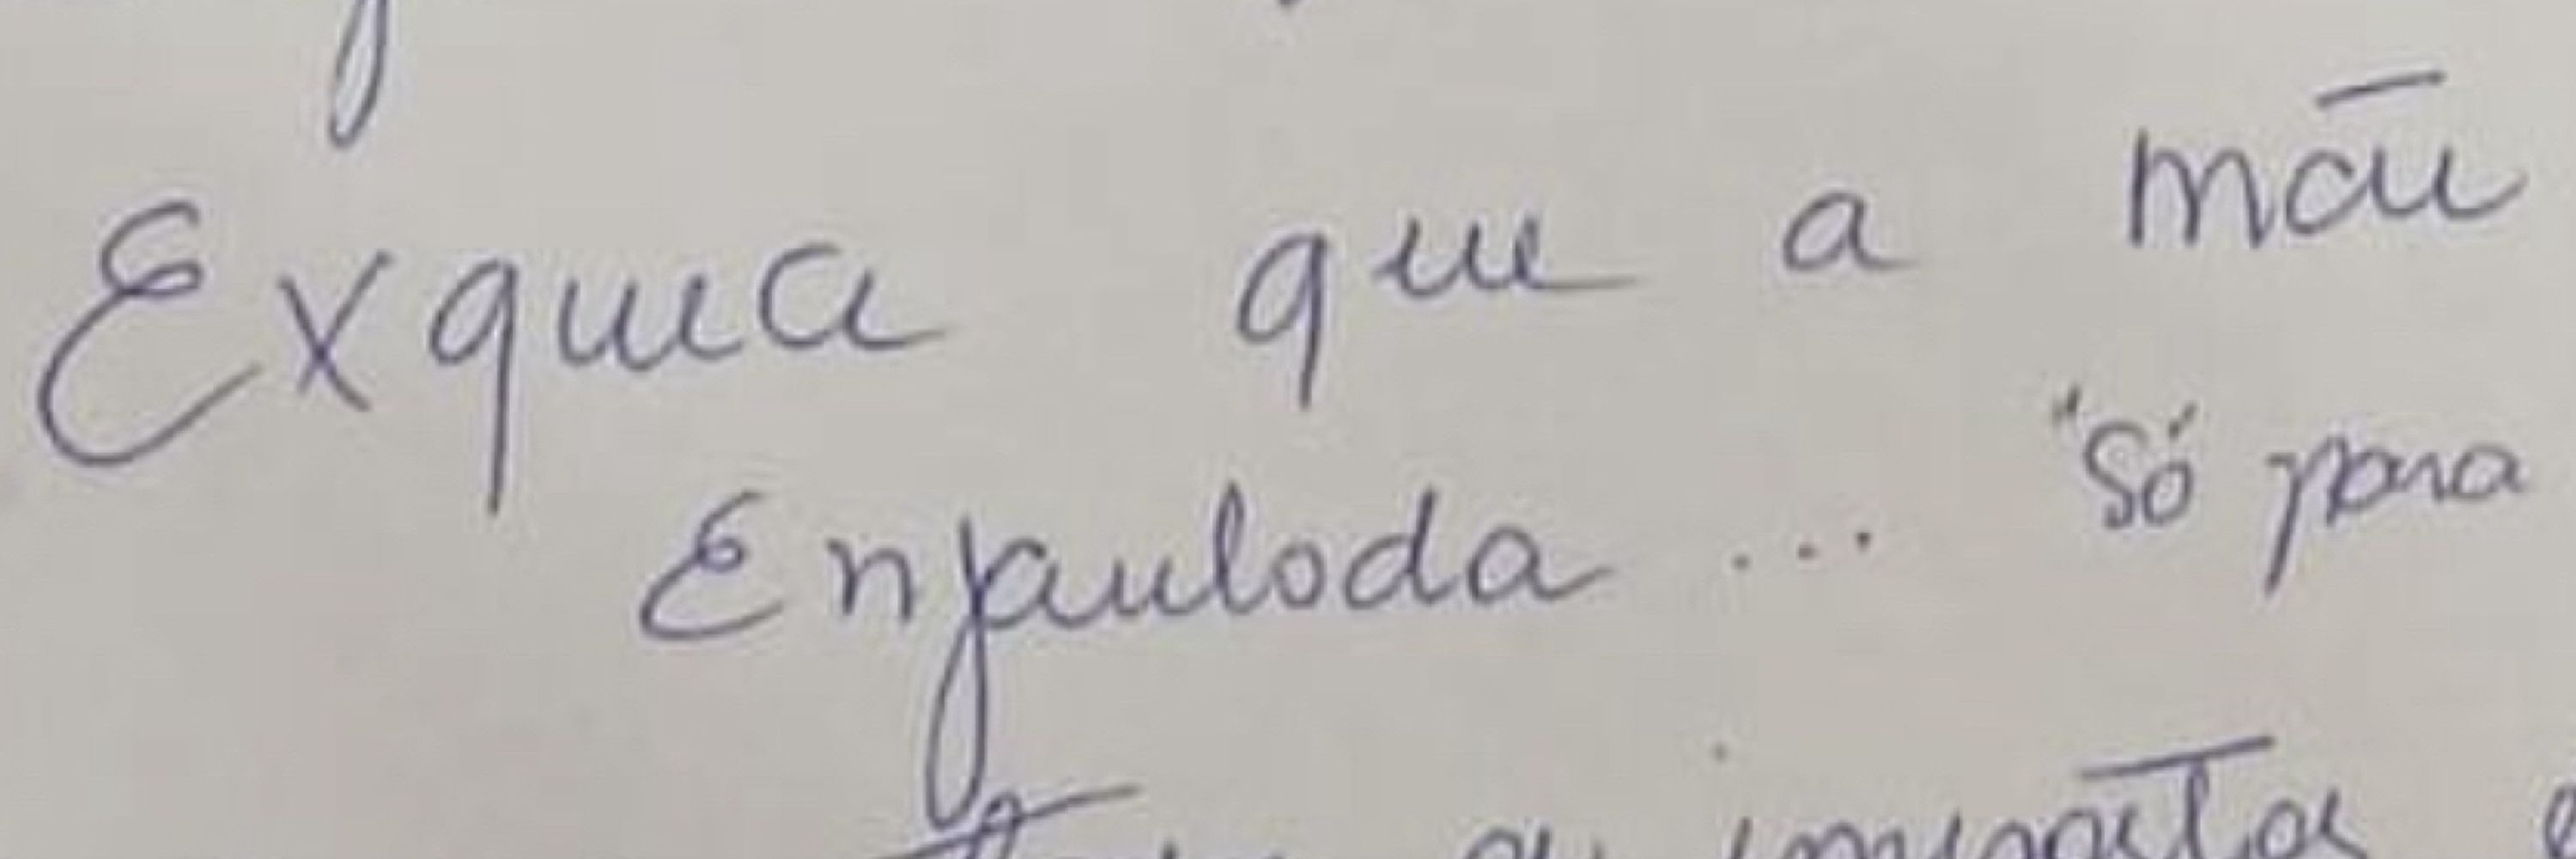 Exquea que a mãe
Enjaulada ... "Só para